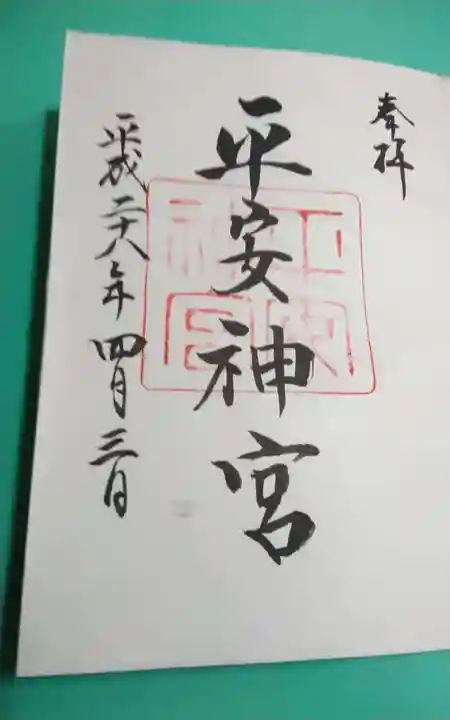 奉拝
平安神宮
平安神宮
平成二十八年四月三日